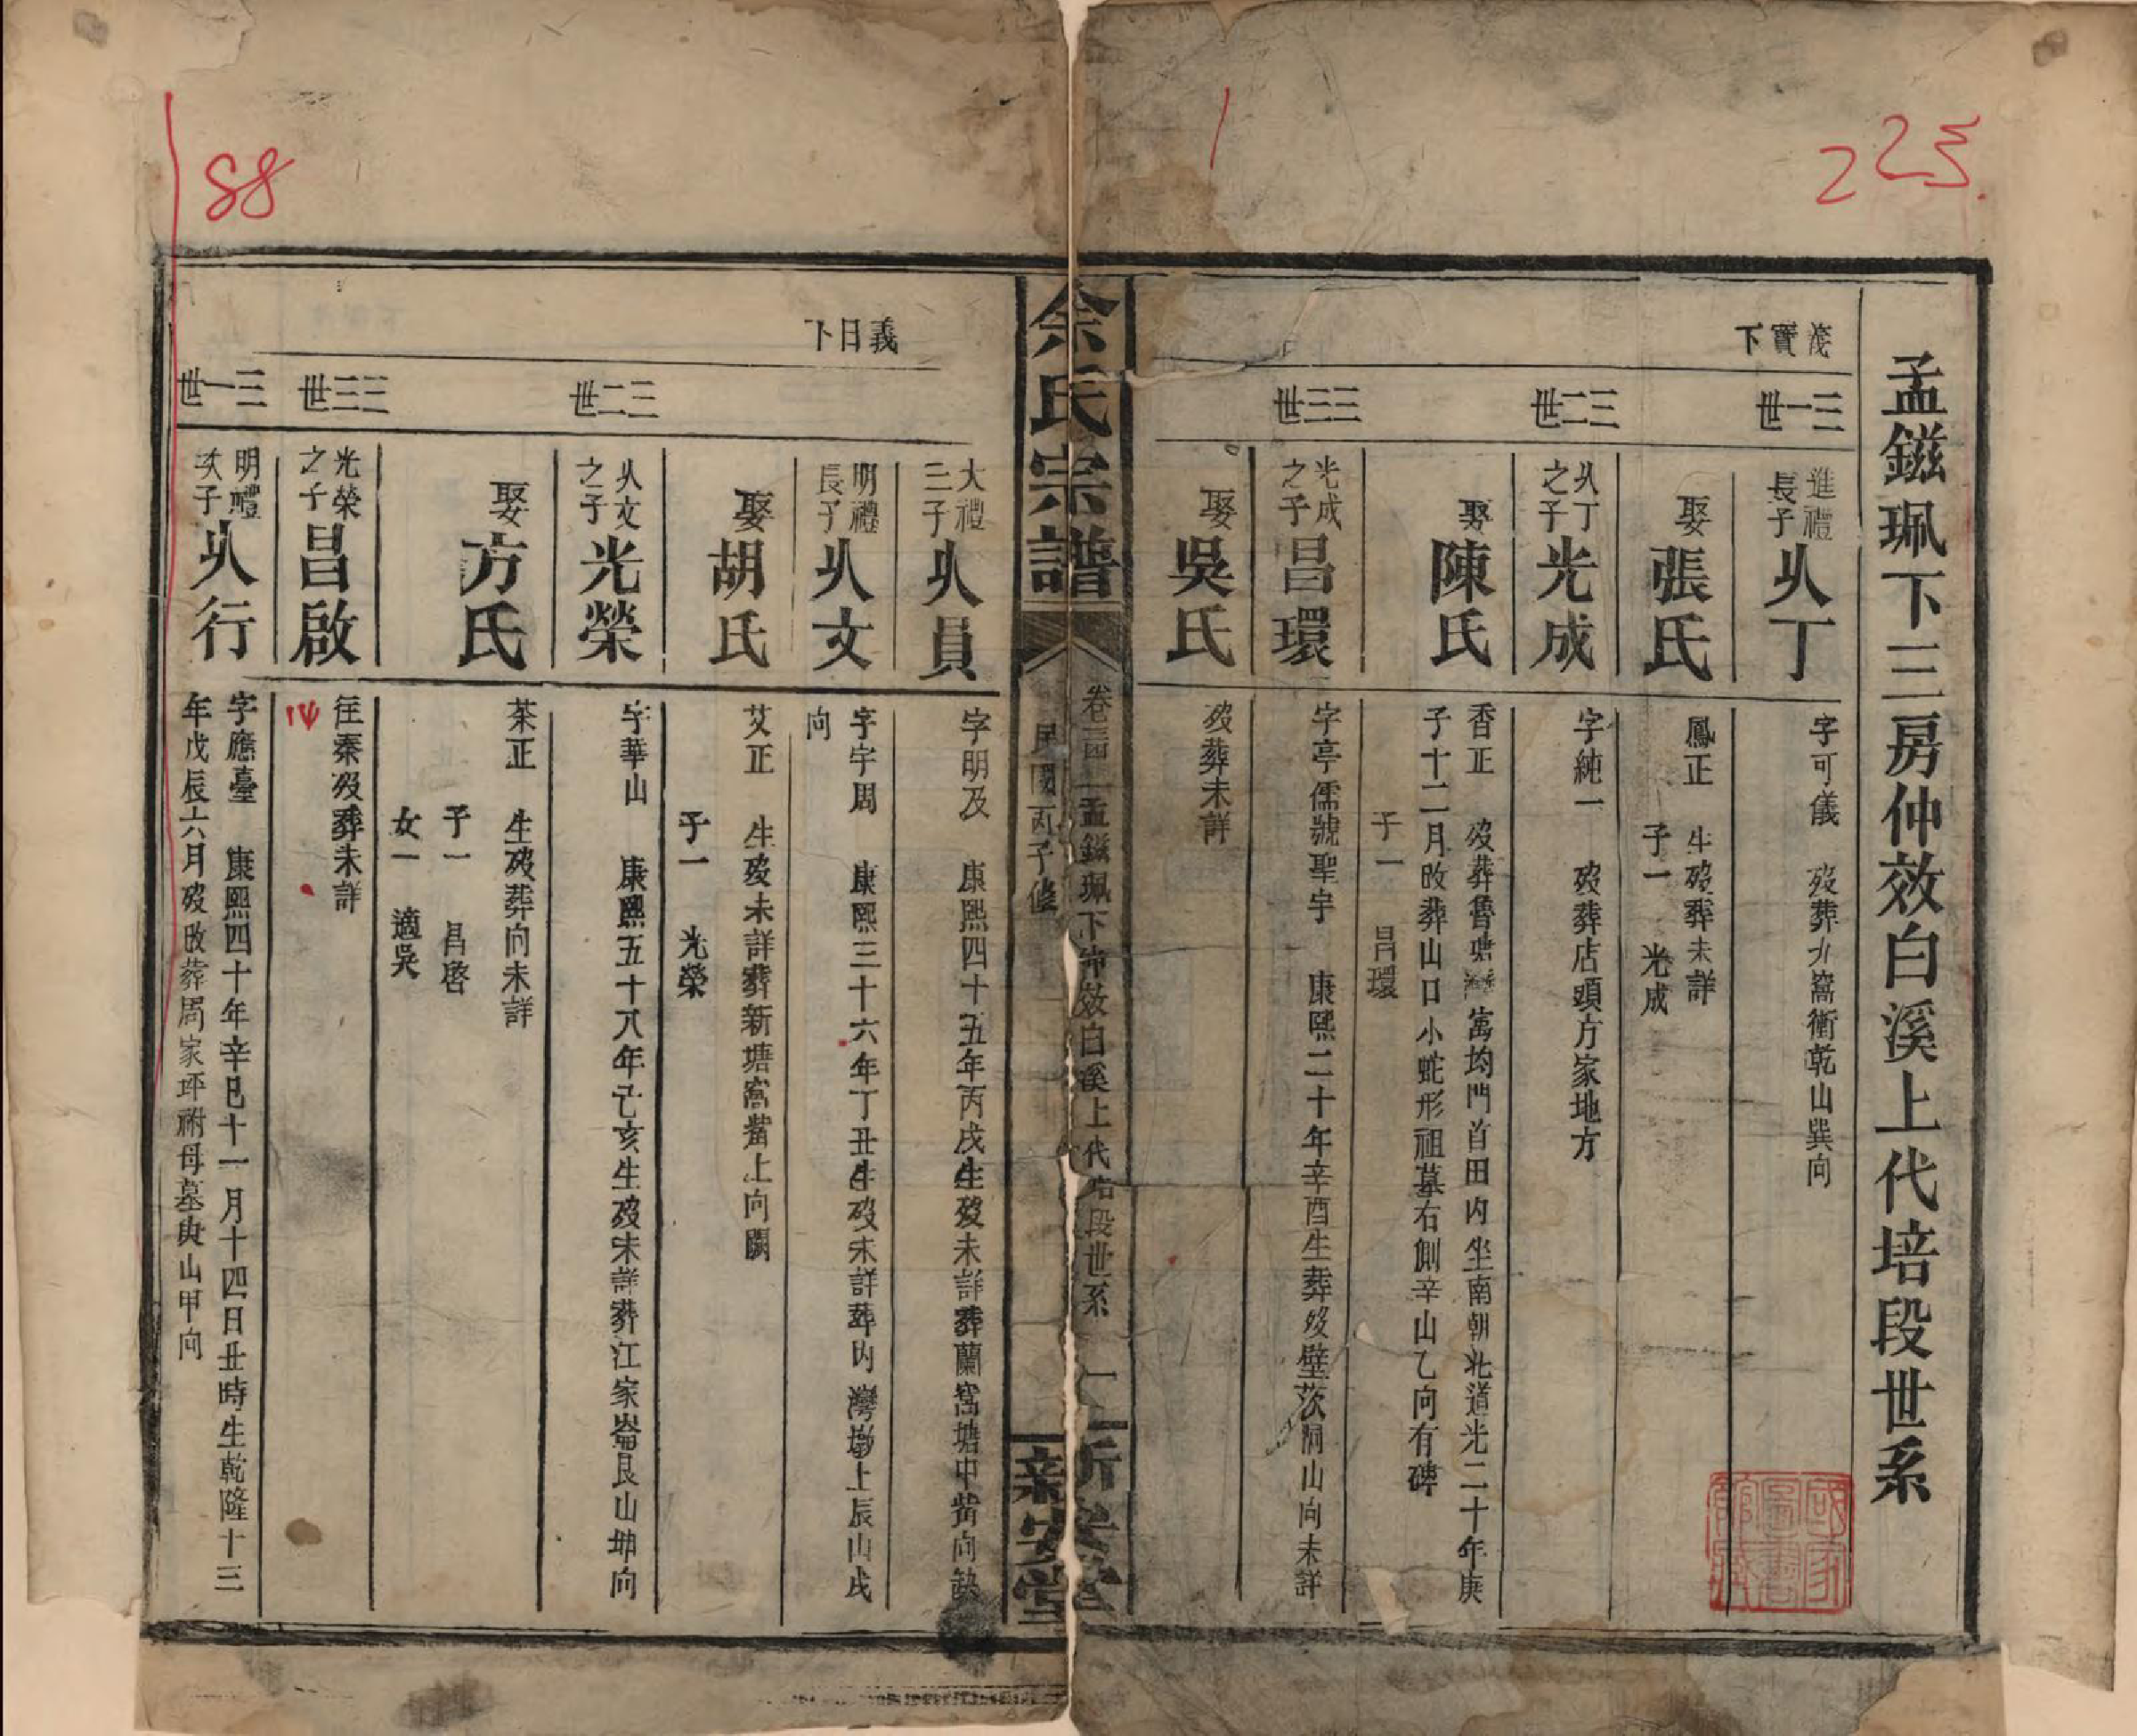 223.
88
孟鎡珮下三房仲效白溪上代培段世系
茂實下
三一世
進禮
長子
㕥丁
字可儀 歿葬九窩衝乾山巽向
娶張氏
鳳正 生歿葬未詳
子一 光成
三二世
㕥丁
之子
光成
字純一 歿葬店頭方家地方
娶陳氏
香正 歿葬魯塘灣窩均門首田內坐南朝北道光二十年庚
子十二月改葬山口小蛇形祖墓右側辛山乙向有碑
子一 昌環
三三世
光成
之子
昌環
字亭儒號聖宇 康熙二十年辛酉生葬歿壁茨洞山向未詳
娶吳氏
歿葬未詳
余氏宗譜
卷三 孟鎡珮下仲效白溪上代培段世系 一
民國丙子修
新安堂
義日下
大禮
三子
㕥員
字明及 康熙四十五年丙戌生歿未詳葬蘭窩塘中嘴向缺
明禮
長子
㕥文
字宇周 康熙三十六年丁丑生歿未詳葬內灣塝上辰山戌
向
娶胡氏
艾正 生歿未詳葬新塘窩嘴上向闕
子一 光榮
三二世
㕥文
之子
光榮
字華山 康熙五十八年己亥生歿未詳葬江家崙艮山坤向
娶方氏
茶正 生歿葬向未詳
子一 昌啓
女一 適吳
三三世
光榮
之子
昌啟
往秦歿葬未詳
三一世
明禮
次子
㕥行
字應臺 康熙四十年辛巳十一月十四日丑時生乾隆十三
年戊辰六月歿改葬周家坪祔母墓庚山甲向
國家圖書館藏